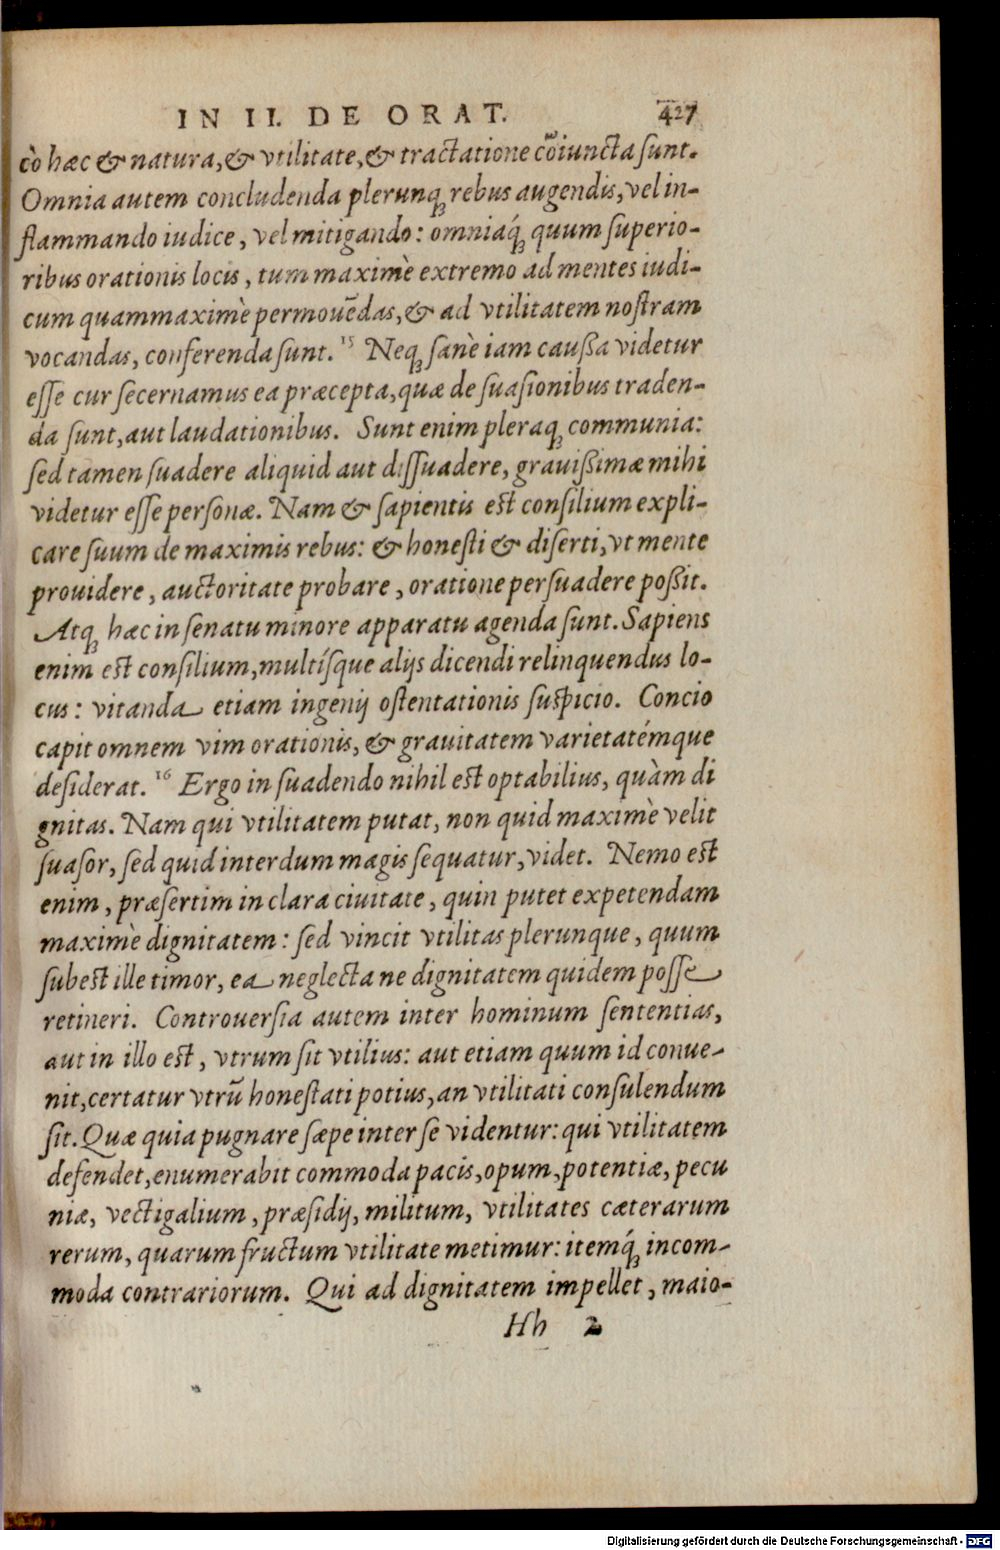 IN II. DE ORAT. 427
cò hæc & natura, & vtilitate, & tractatione cōiuncta sunt.
Omnia autem concludenda plerunq; rebus augendis, vel in-
flammando iudice, vel mitigando: omniáq; quum superio-
ribus orationis locis, tum maximè extremo ad mentes iudi-
cum quammaximè permouēdas, & ad vtilitatem nostram
vocandas, conferenda sunt. 15 Neq; sanè iam caussa videtur
esse cur secernamus ea præcepta, quæ de suasionibus traden-
da sunt, aut laudationibus. Sunt enim pleraq; communia:
sed tamen suadere aliquid aut dissuadere, grauissimæ mihi
videtur esse personæ. Nam & sapientis est consilium expli-
care suum de maximis rebus: & honesti & diserti, vt mente
prouidere, auctoritate probare, oratione persuadere possit.
Atq; hæc in senatu minore apparatu agenda sunt. Sapiens
enim est consilium, multísque alijs dicendi relinquendus lo-
cus: vitanda etiam ingenij ostentationis suspicio. Concio
capit omnem vim orationis, & grauitatem varietatémque
desiderat. 16 Ergo in suadendo nihil est optabilius, quàm di
gnitas. Nam qui vtilitatem putat, non quid maximè velit
suasor, sed quid interdum magis sequatur, videt. Nemo est
enim, præsertim in clara ciuitate, quin putet expetendam
maximè dignitatem: sed vincit vtilitas plerunque, quum
subest ille timor, ea neglecta ne dignitatem quidem posse
retineri. Controuersia autem inter hominum sententias,
aut in illo est, vtrum sit vtilius: aut etiam quum id conue-
nit, certatur vtrū honestati potius, an vtilitati consulendum
sit. Quæ quia pugnare sæpe inter se videntur: qui vtilitatem
defendet, enumerabit commoda pacis, opum, potentiæ, pecu
niæ, vectigalium, præsidij, militum, vtilitates cæterarum
rerum, quarum fructum vtilitate metimur: itemq́; incom-
moda contrariorum. Qui ad dignitatem impellet, maio-
Hh 2
Digitalisierung gefördert durch die Deutsche Forschungsgemeinschaft - DFG